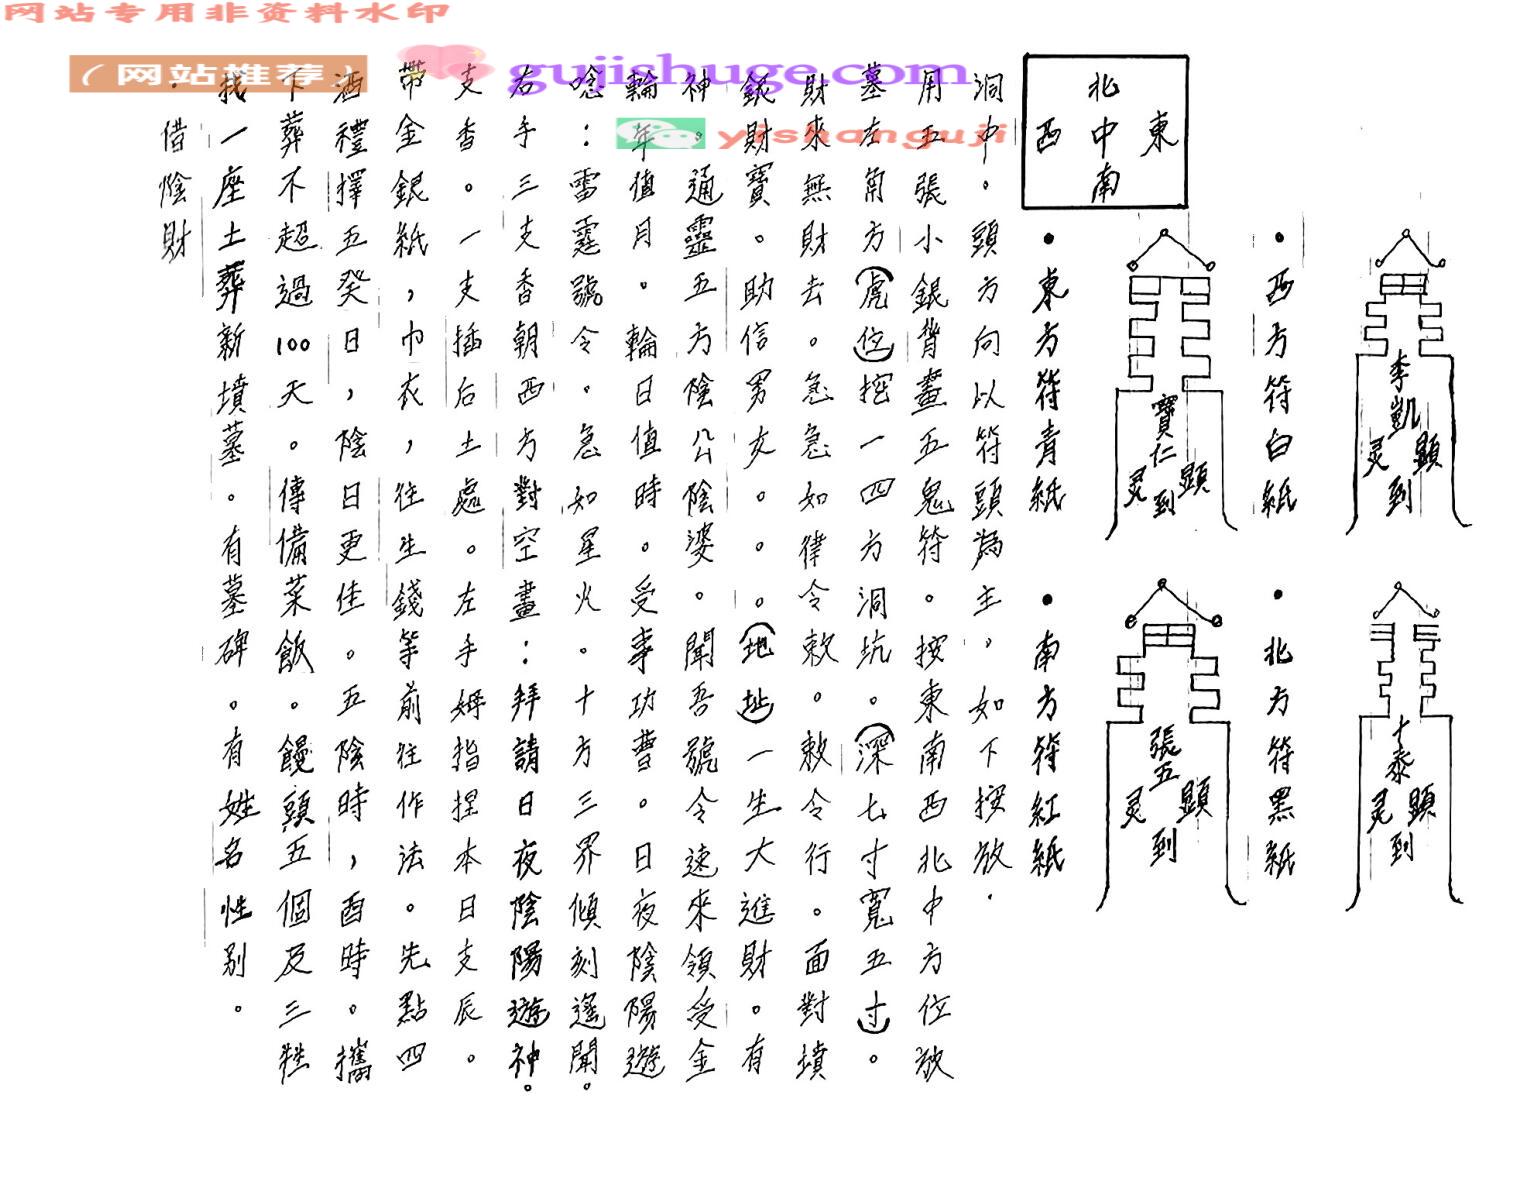 网站专用非资料水印
（网站推荐）
gujishuge.com
yishanguji
·借陰財
找一座土葬新墳墓。有墓碑。有姓名性別。
下葬不超過100天。傳備菜飯。饅頭五個及三牲
酒禮擇五癸日，陰日更佳。五陰時，酉時。攜
帶金銀紙，巾衣，往生錢等前往作法。先點四
支香。一支插后土處。左手姆指捏本日支辰。
右手三支香朝西方對空畫：拜請日夜陰陽遊神。
唸：雷霆號令。急如星火。十方三界傾刻遙聞。
輪年值月。輪日值時。受事功曹。日夜陰陽遊
神。通靈五方陰公陰婆。聞吾號令速來領受金
銀財寶。助信男女。。。（地址）一生大進財。有
財來無財去。急急如律令敕。敕令行。面對墳
墓左角方（虎位）挖一四方洞坑。（深七寸寬五寸）。
用五張小銀背畫五鬼符。按東南西北中方位放
洞中。頭方向以符頭為主。如下按放.
北
西 中 東
南
·東方符青紙
寶仁
灵 顯
到
·南方符紅紙
張五
灵 顯
到
·西方符白紙
李凱
灵 顯
到
·北方符黑紙
十泰
灵 顯
到